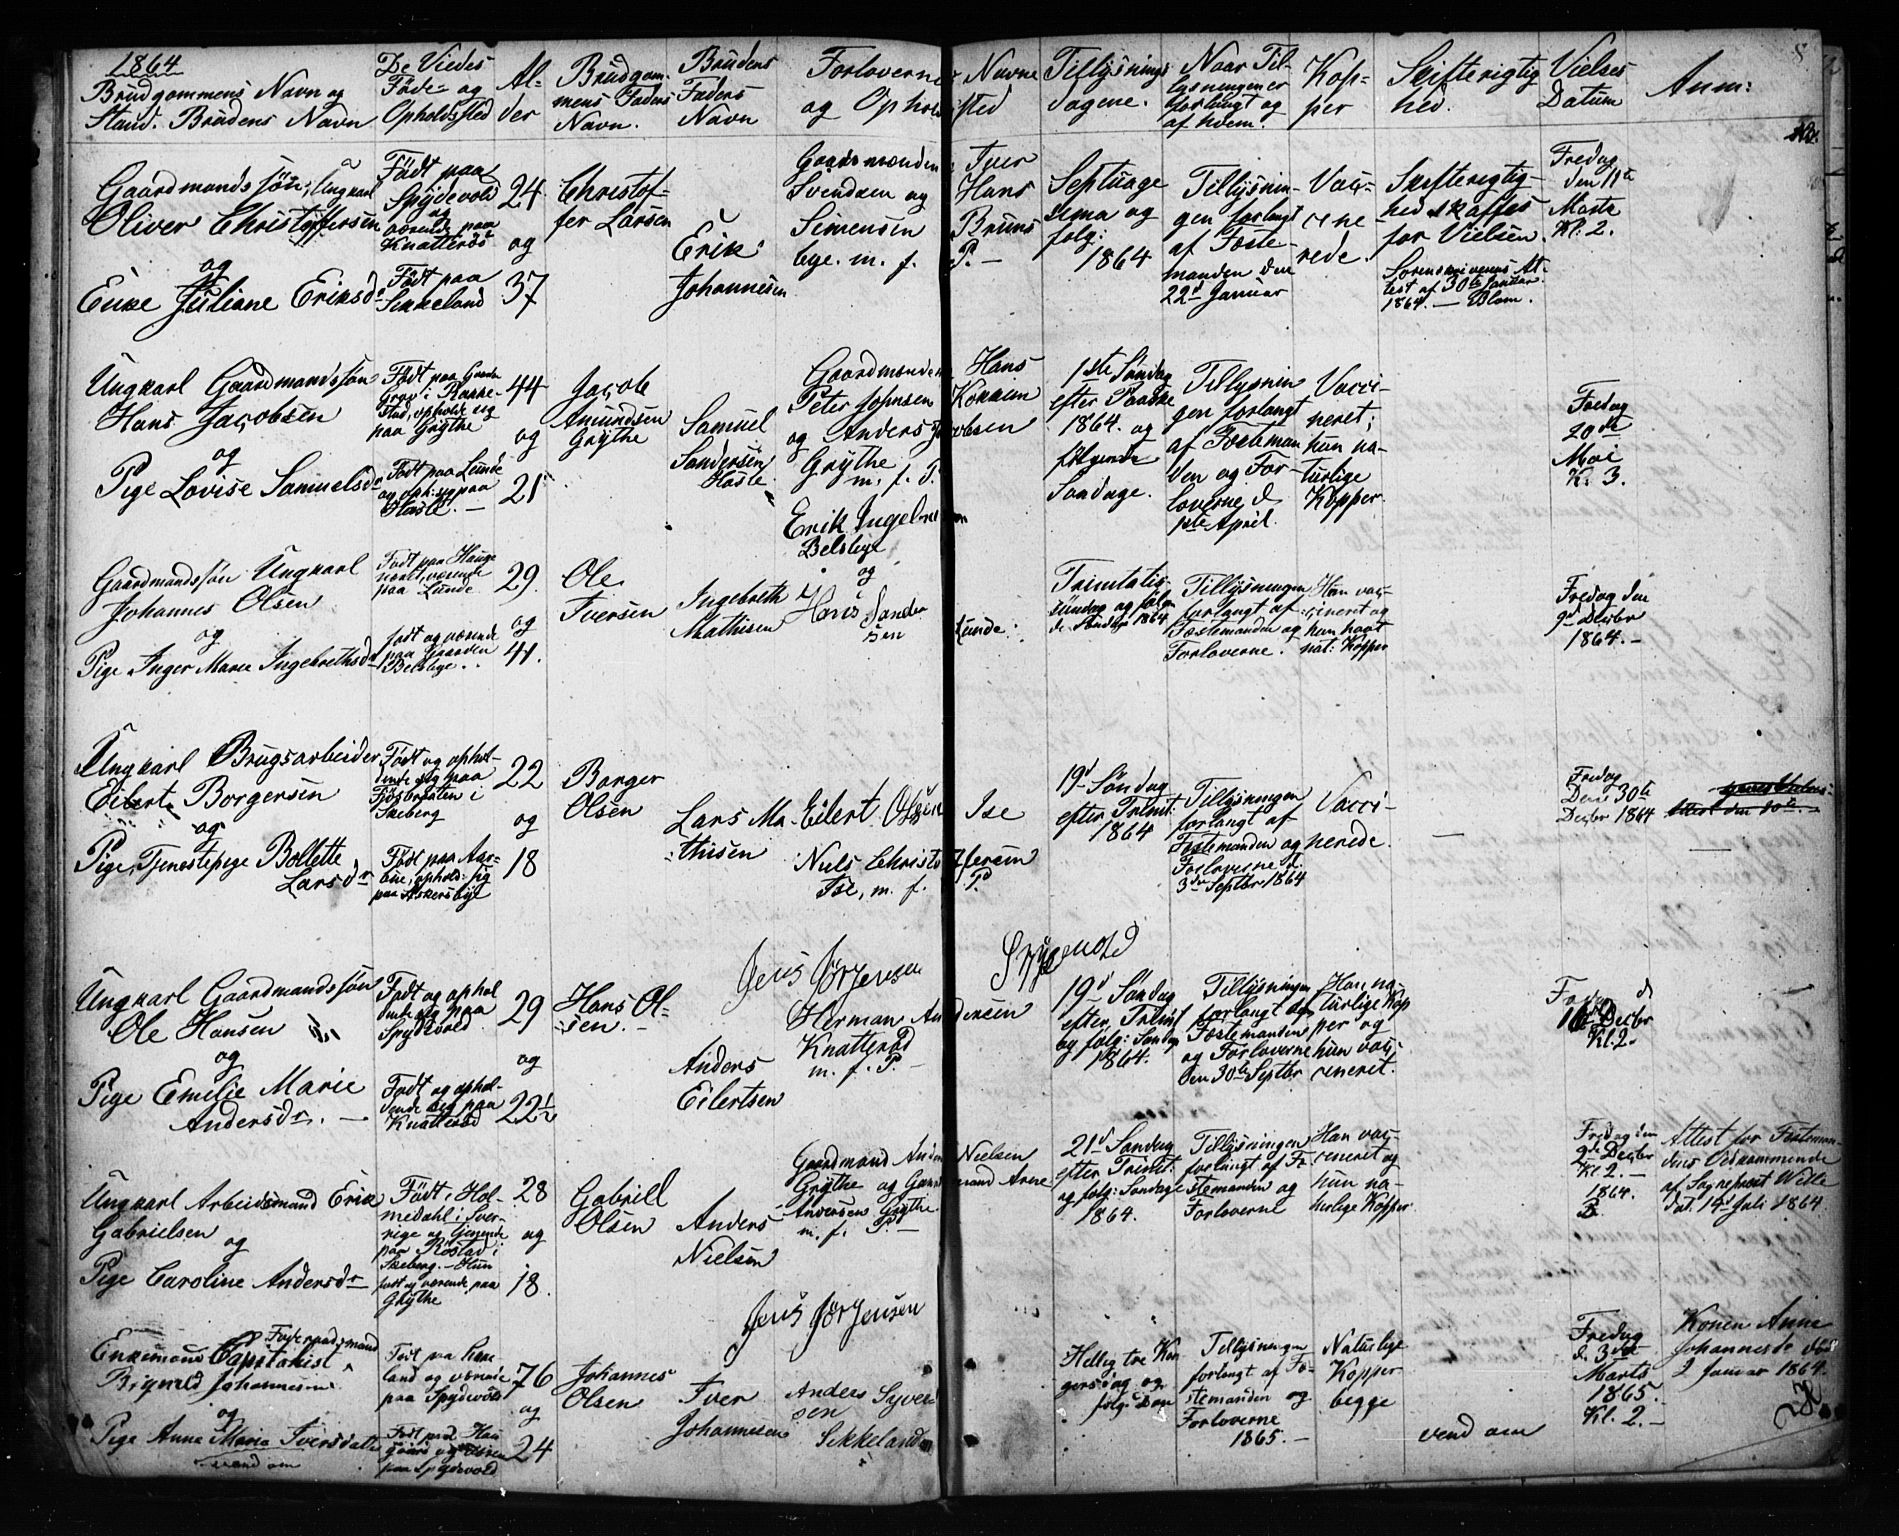 1864
Brudgommens Navn og
Stand. Brudens Navn
De Viedes
Føde- og
Opholdssted
Al-
der
Brudgom-
mens Faders
Navn.
Brudens
Faders
Navn
Forlovernes Navne
og Opholdssted
Tillysnings
dagene.
Naar Til-
lysningen er
forlangt og
af hvem.
Kop-
per
Skifterigtig
hed.
Vielses
Datum
Anm:
Gaardmandssøn, Ungkarl
Oliver Christoffersen
og
Enke Juliane Eriksdr
Født paa
Spydevold
og
værende paa
Knatterød
Født paa
Sikkeland
24
og
37
Christof-
fer Larsen
Erik
Johannesen
Gaardmænden Iver
Svendsen og Hans
Simensen Bruns
bye. m. f. P. —
Septuage
sima og
følg:
1864
Tillysnin-
gen forlangt
af Fæste-
manden den
22d Januar
Vacc-
cine
rede.
Skifterigtig-
hed skaffes
for Vielsen.
Sorenskriverens At-
test af 30te Januar
1864. — Blom.
Fredag
den 11te
Marts
Kl. 2.
Ungkarl Gaardmandssøn
Hans Jacobsen
og
Pige Lovise Samuelsdr
Født paa Gaarden
Grav i Rakke-
stad, opholde sig
paa Grythe
Født paa Lunde
og oph: sig paa
Hasle. —
44
og
21
Jacob
Amundsen
Grythe
Samuel
Sandersen
Hasle.
Gaardmænden Hans
Peter Johnsen Kokkim
og Anders Jacobsen
Grythe
m. f. P.
1ste Søndag
efter Paaske
1864. og
følgende
Søndage.
Tillysnin
gen forlangt
af Fæsteman
den og For-
loverne d
1ste April.
Vacci-
neret;
hun na-
turlige
Kopper.
Fredag
20de
Mai
Kl. 3.
Gaardmandssøn Ungkarl
Johannes Olsen
og
Pige Inger Marie Ingebrethsdr
Født paa Hauge
værende
paa Lunde
født og værende
paa Gaarden
Belsbye.
29.
og
41.
Ole
Iversen
Ingebreth
Mathisen
Erik Ingebretsen
Belsbye
og
Hans Sander
sen Lunde.
Trinitatis-
søndag og følgen
de Søndge 1864
Tillysningen
forlangt af
Fæstemanden og
Forloverne.
Han vac-
cineret og
hun havt
nat: Kopper
Fredag den
9d Decbr
1864. —
Ungkarl Brugsarbeider
Eilert Borgersen
og
Pige, Tjenestepige Bollette
Larsdr
Født og ophol-
dende sig paa
i
Skeberg
Født paa Aar-
bue, ophold: sig
paa Askersbye
22
og
18
Borger
Olsen
Lars Ma-
thisen
Eilert Olsen Ise
Niels Christoffersen
Ise, m. f. P.
19d Søndag
efter Trinit.
1864
Tillysningen
forlangt af
Fæstemanden og
Forloverne d.
3die Septbr 1864
Vacci-
nerede.
Fredag
Den 30te
Decbr 1864
Ungkarl Gaardmandssøn
Ole Hansen
og
Pige Emilie Marie
Andersdr. —
Født og ophol
dende sig paa
Spydevold.
Født og ophol-
dende sig paa
Knatterød
29
og
22½
Hans Ol-
sen. —
Anders
Eilertsen
Jens Jørgensen Spydevold
Herman Andersen
Knatterød
m. f. P. —
19d Søndag
efter Trinit
og følg: Søndag
1864.
Tillysningen
forlangt af
Fæstemanden
og Forloverne
den 30te Septbr
Han na-
turlige Kop
per og
hun vac-
cineret.
16 Decbr
Kl. 2.
Ungkarl Arbeidsmand Erik
Gabrielsen
og
Pige Caroline Andersdr
Født i Hol-
medahl i Sver-
rige og tjenende
paa Røstad i
Skeberg. — Hun
født og værende paa
Grythe
28
og
18.
Gabriel
Olsen
Anders
Nielsen
Gaardmand Anders Nielsen
Grythe og Gaardmand Arne
Andersen Grythe
m. f. P. —
21d Søndag
efter Trinit.
og følg: Søndage
1864.
Tillysningen
forlangt af Fæ-
stemanden og
Forloverne
Han vac-
cineret og
hun na-
turlige Kopper
Fredag den
9de Decbr
Kl 2. —
1864.
Attest for Fæsteman-
dens Vedkommende
af Sogneprest Wille
dat. 14d Juli 1864.
Enkemand Capitalist Føderaadsmand
Johannesen
og
Pige Anne Maria Iversdatter
vend om
land og værende
paa Spydevold
paa Spydevold
76
og
24
Johannes
Olsen
Iver
Johannesen
Jens Jørgensen
Anders Syver
sen
Sikkeland
Hellig tre Kon
gersdag og
følg: Søn
Tillysningen
forlangt af Fæ-
stemanden og
Forloverne
1865. —
Naturlige
Kopper
begge
vend om
Fredag
d. 3die
Marts
1865.
Kl. 2. —
Konen Anne
Johannesdr død
2 Januar 1864.